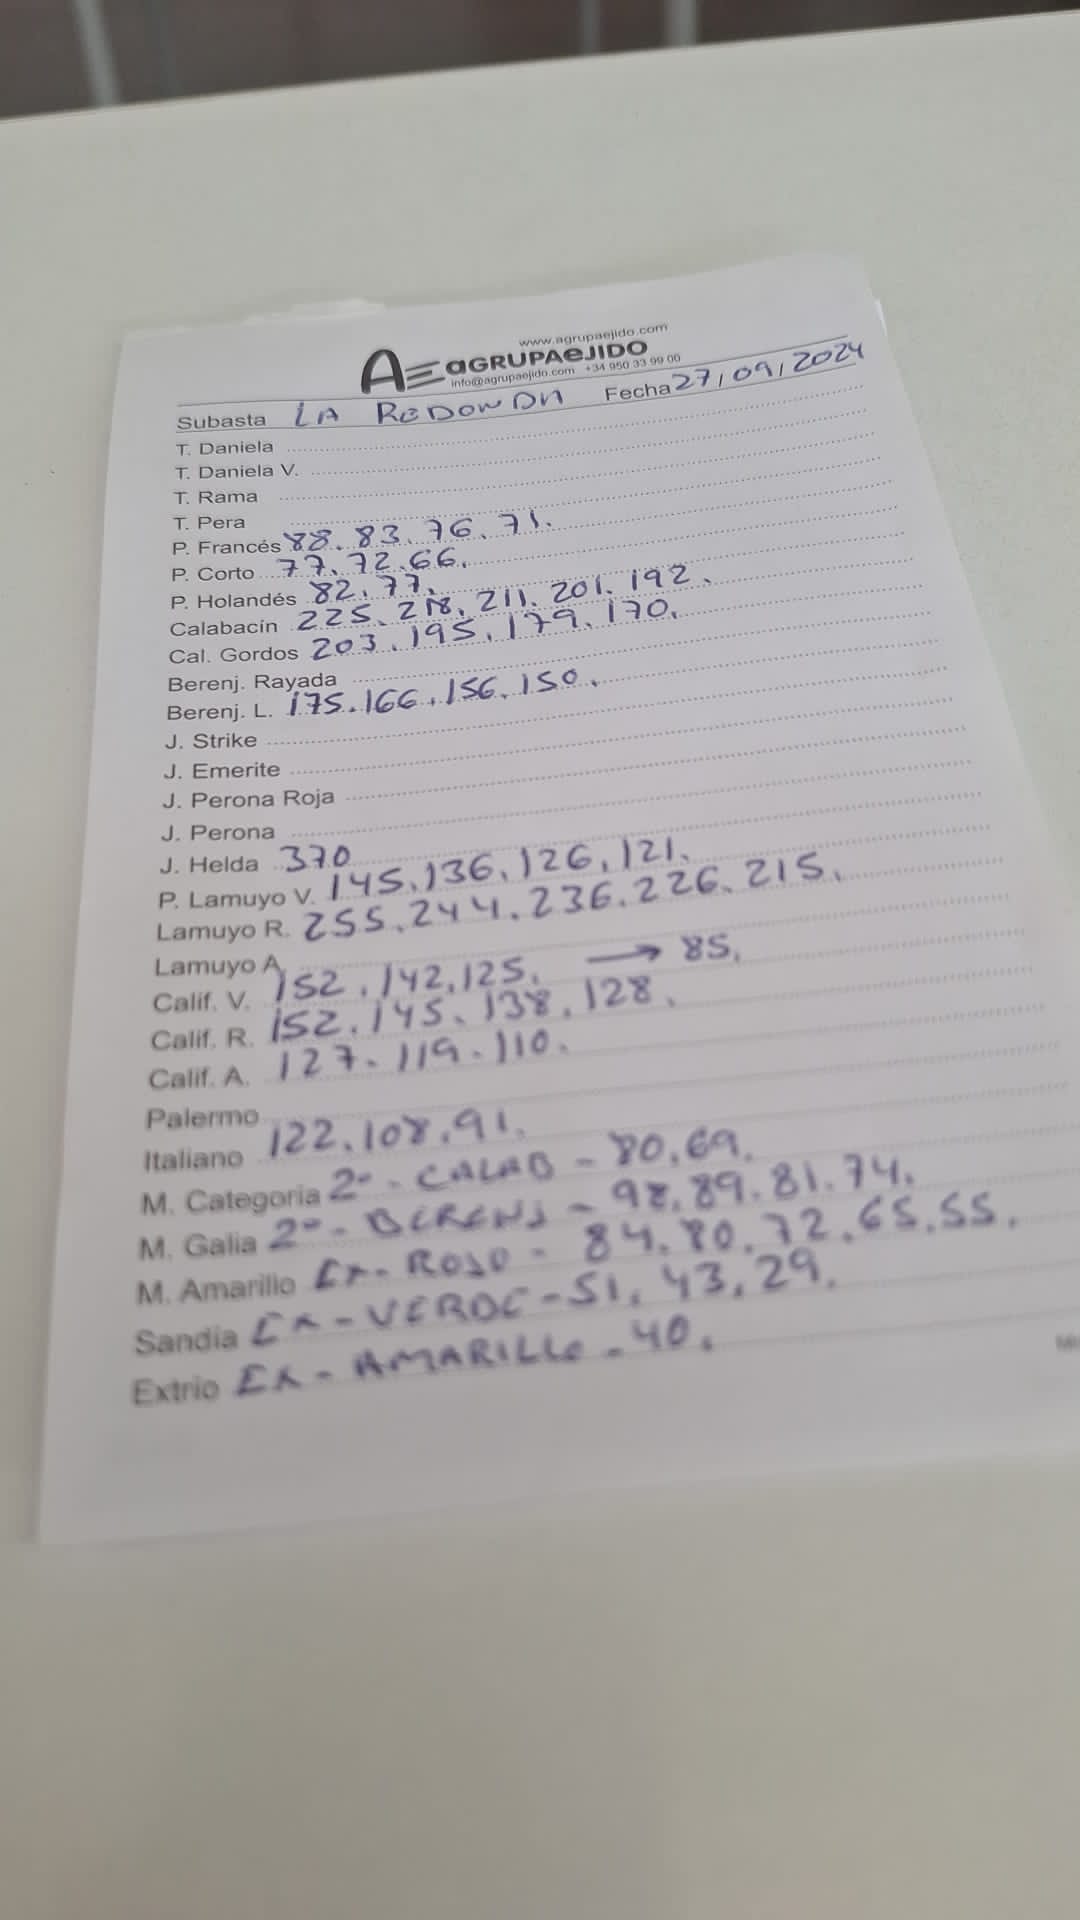 www.agrupaejido.com
AE aGRUPAeJIDO
info@agrupaejido.com +34 950 33 99 00
Subasta LA REDONDA Fecha 27/09/2024
T. Daniela
T. Daniela V.
T. Rama
T. Pera
P. Francés 88. 83. 76. 71.
P. Corto 77. 72. 66.
P. Holandés 82. 77.
Calabacín 225. 218. 211. 201. 192.
Cal. Gordos 203. 195. 179. 170.
Berenj. Rayada
Berenj. L. 175. 166. 156. 150.
J. Strike
J. Emerite
J. Perona Roja
J. Perona
J. Helda 370
P. Lamuyo V. 145. 136. 126. 121.
Lamuyo R. 255. 244. 236. 226. 215.
Lamuyo A.
Calif. V. 152. 142. 125. → 85.
Calif. R. 152. 145. 138. 128.
Calif. A. 127. 119. 110.
Palermo
Italiano 122. 108. 91.
M. Categoria 2ª - CALAB - 80. 69.
M. Galia 2ª - BERENJ - 98. 89. 81. 74.
M. Amarillo EX - ROJO - 84. 80. 72. 65. 55.
Sandia EX - VERDE - 51. 43. 29.
Extrio EX - AMARILLO - 40.